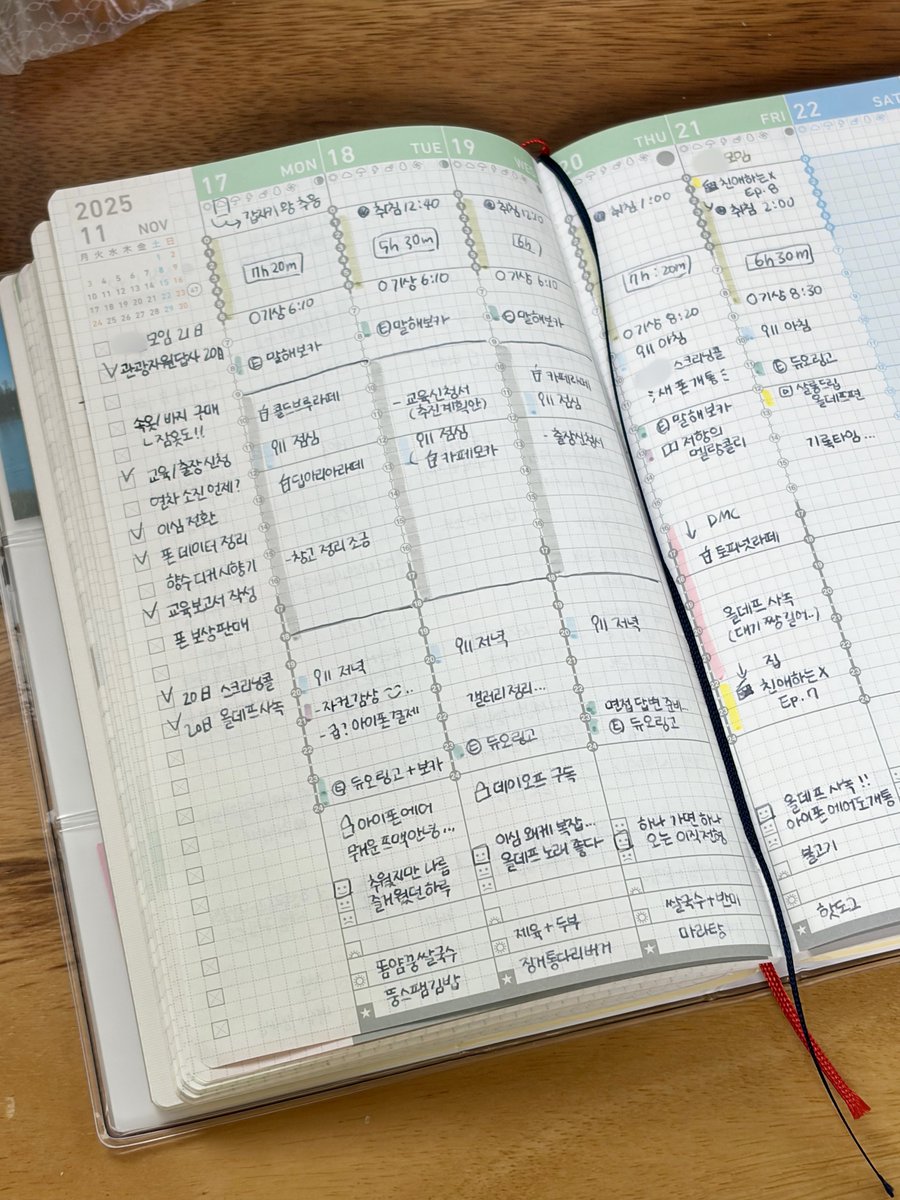 2025
11 NOV
月 火 水 木 金 土 日
1 2
3 4 5 6 7 8 9
10 11 12 13 14 15 16
17 18 19 20 21 22 23
24 25 26 27 28 29 30
47
모임 21日
관광자원답사 20日
속옷/바지 구매
ㄴ잠옷도!!
교육/출장신청
연차 소진 언제?
이심 전환
폰 데이터 정리
향수 디커 시향기
교육보고서 작성
폰 보상판매
20日 스크리닝콜
20日 올데프사녹
17 MON
갑자기 왕 추움
7h 20m
기상 6:10
E 말해보카
콜드브루라떼
점심
딥아리아라떼
-창고 정리 조금
저녁
-자컨감상
-급: 아이폰결제
E 듀오링고+보카
아이폰에어
무거운 프맥안녕...
추웠지만 나름
즐거웠던 하루
똠얌꿍쌀국수
뚱스팸김밥
18 TUE
취침 12:40
5h 30m
기상 6:10
E 말해보카
- 교육신청서
(추진계획안)
점심
카페모카
저녁
갤러리정리...
E 듀오링고
데이오프 구독
이심 왜케 복잡...
올데프 노래 좋다
제육+두부
징거통다리버거
19 WE
취침 12:10
6h
기상 6:10
E 말해보카
카페라떼
점심
- 출장신청서
저녁
면접 답변 준비..
E 듀오링고
하나 가면 하나
오는 이직전형
쌀국수+반미
마라탕
20 THU
취침 1:00
7h:20m
기상 8:20
아침
스크리닝콜
새 폰 개통
E 말해보카
저항의
멜랑콜리
↓ DMC
토피넛라떼
올데프 사녹
(대기 짱 길어..)
↓ 집
친애하는X
Ep.7
올데프 사녹!!
아이폰 에어도 개통
불고기
핫도그
21 FRI
모임
친애하는X
Ep.8
취침 2:00
6h 30m
기상 8:30
아침
E 듀오링고
살롱드립
올데프편
기록타임...
22 SAT